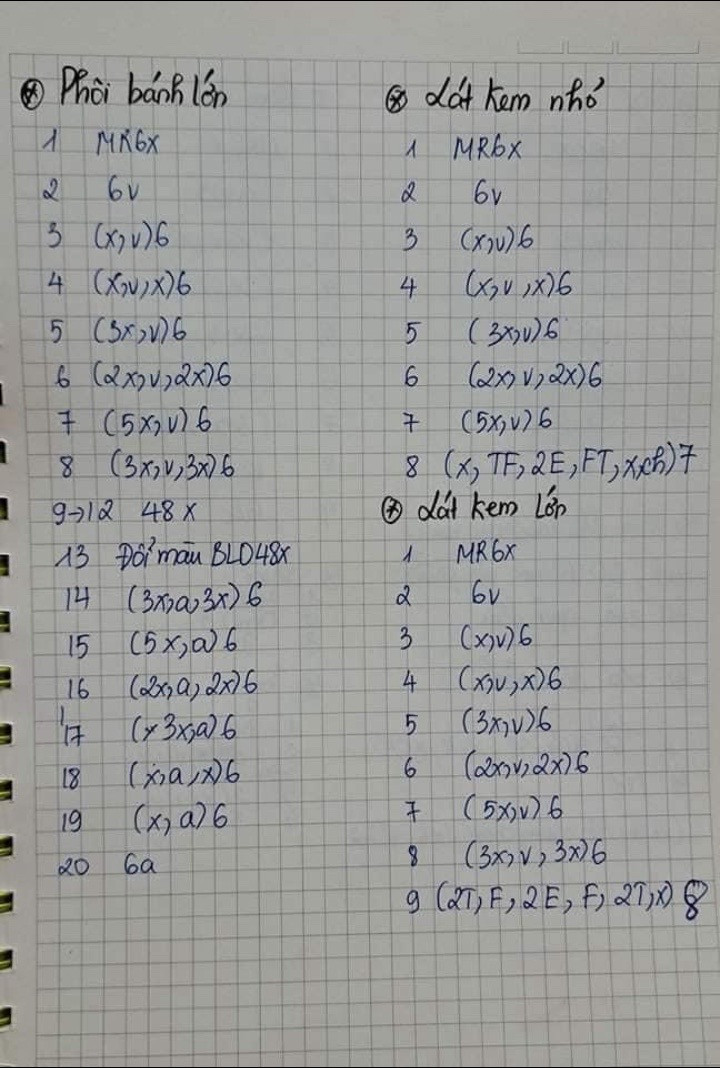 ⊛ Phôi bánh lớn
1 MR6x
2 6v
3 (x,v)6
4 (x,v,x)6
5 (3x,v)6
6 (2x,v,2x)6
7 (5x,v)6
8 (3x,v,3x)6
9→12 48x
13 Đổi màu BLO48x
14 (3x,a,3x)6
15 (5x,a)6
16 (2x,a,2x)6
17 (3x,a)6
18 (x,a,x)6
19 (x,a)6
20 6a
⊛ Lát kem nhỏ
1 MR6x
2 6v
3 (x,v)6
4 (x,v,x)6
5 (3x,v)6
6 (2x,v,2x)6
7 (5x,v)6
8 (x,TF,2E,FT,x,ch)7
⊛ Lát kem lớn
1 MR6x
2 6v
3 (x,v)6
4 (x,v,x)6
5 (3x,v)6
6 (2x,v,2x)6
7 (5x,v)6
8 (3x,v,3x)6
9 (2T,F,2E,F,2T,x)